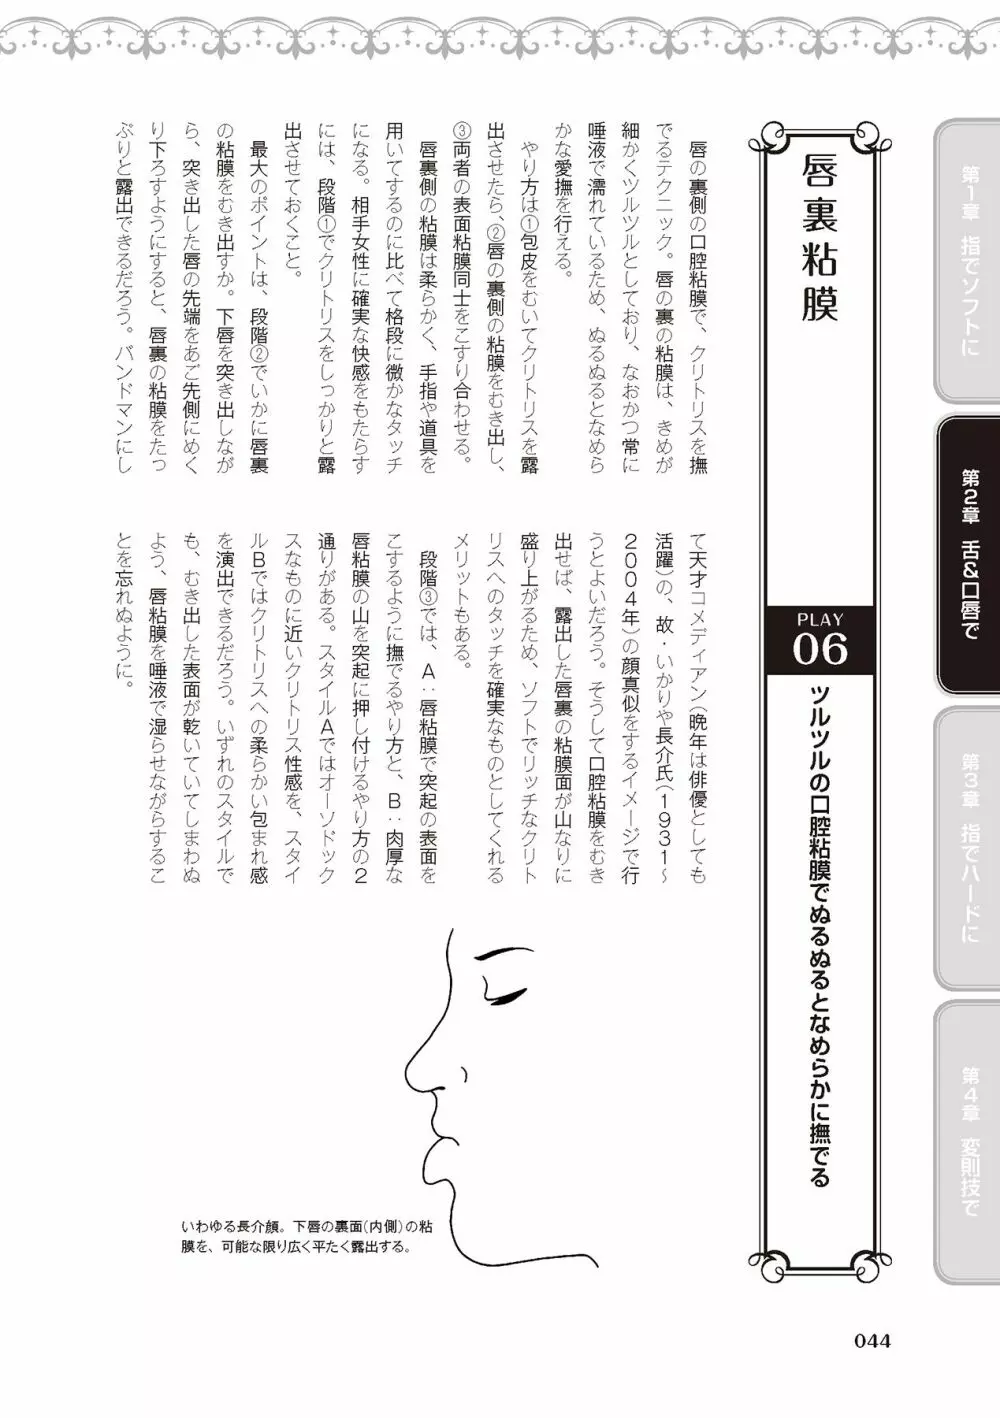 唇裏粘膜
PLAY
06
ツルツルの口腔粘膜でぬるぬるとなめらかに撫でる
唇の裏側の口腔粘膜で、クリトリスを撫
でるテクニック。唇の裏の粘膜は、きめが
細かくツルツルとしており、なおかつ常に
唾液で濡れているため、ぬるぬるとなめら
かな愛撫を行える。
やり方は①包皮をむいてクリトリスを露
出させたら、②唇の裏側の粘膜をむき出し、
③両者の表面粘膜同士をこすり合わせる。
唇裏側の粘膜は柔らかく、手指や道具を
用いてするのに比べて格段に微かなタッチ
になる。相手女性に確実な快感をもたらす
には、段階①でクリトリスをしっかりと露
出させておくこと。
最大のポイントは、段階②でいかに唇裏
の粘膜をむき出すか。下唇を突き出しなが
ら、突き出した唇の先端をあご先側にめく
り下ろすようにすると、唇裏の粘膜をたっ
ぷりと露出できるだろう。バンドマンにし
て天才コメディアン（晩年は俳優としても
活躍）の、故・いかりや長介氏（1931～
2004年）の顔真似をするイメージで行
うとよいだろう。そうして口腔粘膜をむき
出せば、露出した唇裏の粘膜面が山なりに
盛り上がるため、ソフトでリッチなクリト
リスへのタッチを確実なものとしてくれる
メリットもある。
段階③では、A：唇粘膜で突起の表面を
こするように撫でるやり方と、B：肉厚な
唇粘膜の山を突起に押し付けるやり方の2
通りがある。スタイルAではオーソドック
スなものに近いクリトリス性感を、スタイ
ルBではクリトリスへの柔らかい包まれ感
を演出できるだろう。いずれのスタイルで
も、むき出した表面が乾いていてしまわぬ
よう、唇粘膜を唾液で湿らせながらするこ
とを忘れぬように。
いわゆる長介顔。下唇の裏面（内側）の粘
膜を、可能な限り広く平たく露出する。
第1章 指でソフトに
第2章 舌&口唇で
第3章 指でハードに
第4章 変則技で
044